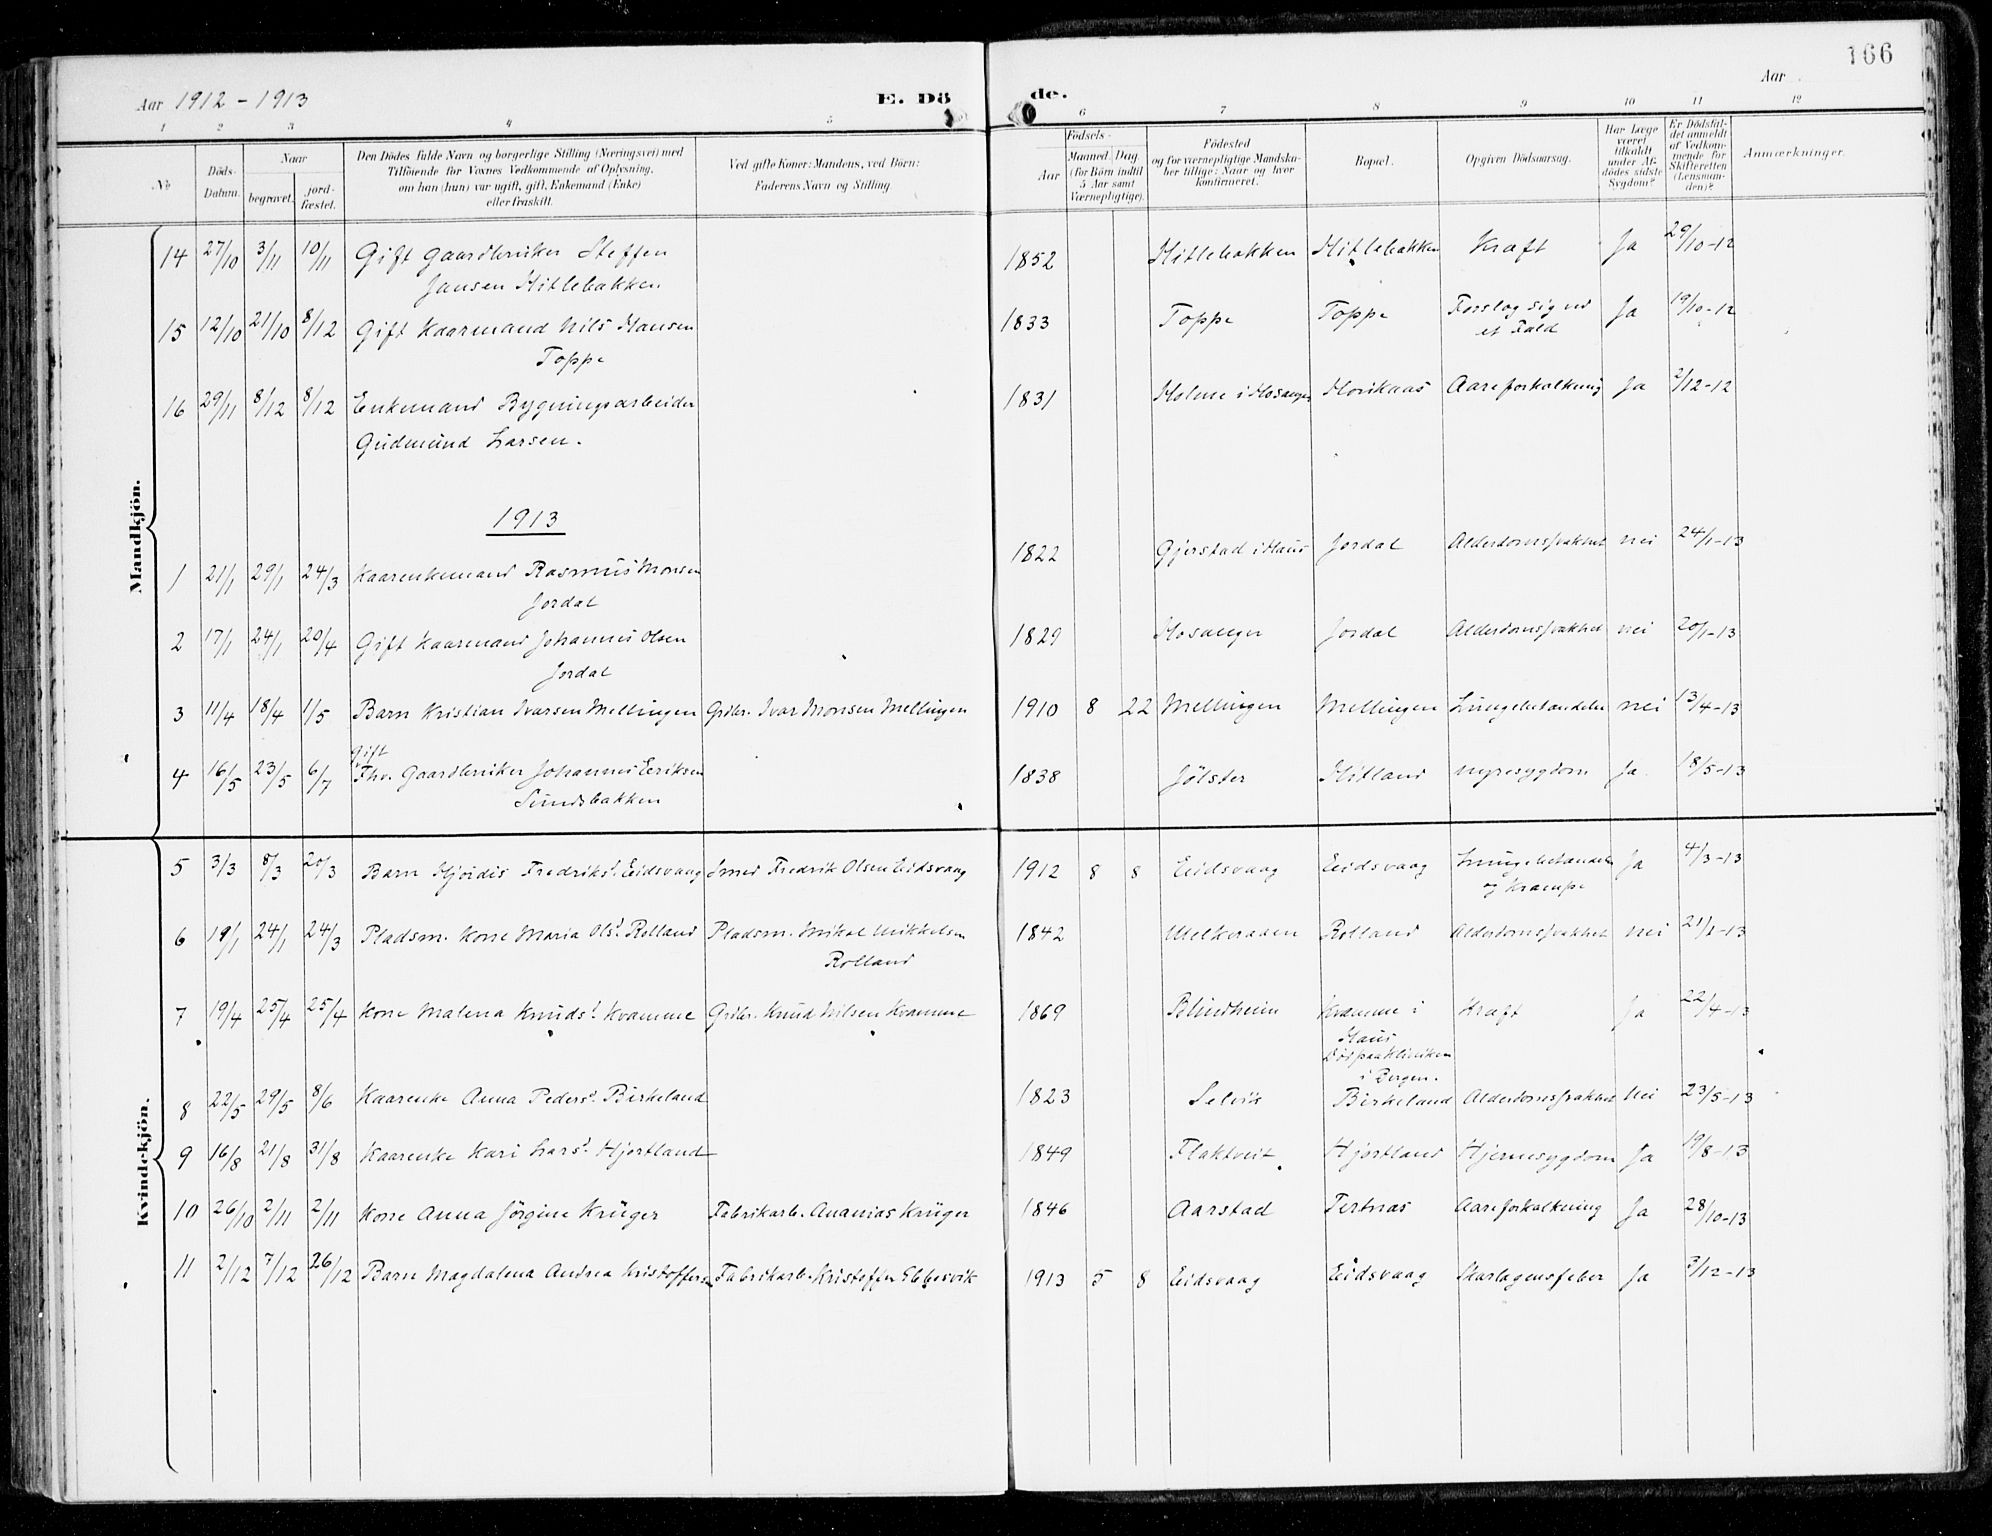 166
Aar 1912 - 1913
E. Dö
de.
Aar
1 2 3 4 5 6 7 8 9 10 11 12
№
Döds-
Datum.
Naar
begravet.
jord-
fæstet.
Den Dödes fulde Navn og borgerlige Stilling (Næringsvei) med
Tilföiende for Voxnes Vedkommende af Oplysning,
om han (hun) var ugift, gift, Enkemand (Enke)
eller fraskilt.
Ved gifte Koner: Mandens, ved Börn:
Faderens Navn og Stilling.
Födsels-
Aar
Maaned. Dag
(for Börn indtil
5 Aar samt
Værnepligtige).
Födested
og for værnepligtige Mandska-
ber tillige: Naar og hvor
konfirmeret.
Bopæl.
Opgiven Dödsaarsag.
Har Læge
været
tilkaldt
under Af-
dödes sidste
Sygdom?
Er Dödsfal-
det anmeldt
af Vedkom-
mende for
Skifteretten
(Lensman-
den)?
Anmærkninger.
Mandkjön.
14 27/10 3/11 10/11 Gift Gaardbruker Steffen
Jansen Hitlebakken
1852 Hitlebakken Hitlebakken Kræft Ja 29/10-12
15 12/10 21/10 8/12 Gift Kaarmand Nils Hansen
Toppe
1833 Toppe Toppe Forslog sig ved
et Fald
Ja 19/10-12
16 29/11 8/12 8/12 Enkemand Bygningsarbeider
Gudmund Larsen.
1831 Holme i Hosanger Horikaas Aareforkalkning Ja 2/12-12
1913
1 21/1 29/1 24/3 Kaarenkemand Rasmus Monsen
Jordal
1822 Gjerstad i Haus Jordal Alderdomssvakhet nei 24/1-13
2 17/1 24/1 20/4 Gift Kaarmand Johannes Olsen
Jordal
1829 Hosanger Jordal Alderdomssvakhet nei 20/1-13
3 11/4 18/4 1/5 Barn Kristian Ivarsen Mellingen Grdbr. Ivar Monsen Mellingen 1910 8 22 Mellingen Mellingen Lungebetændelse nei 13/4-13
Gift
4 16/5 23/5 6/7 Fhv. Gaardbruker Johannes Eriksen
Sundsbakken
1838 Jölster Hitland nyresygdom Ja 18/5-13
Kvindekjön.
5 3/3 8/3 20/3 Barn Hjördis Fredriksd. Eidsvaag Smed Fredrik Olsen Eidsvaag 1912 8 8 Eidsvaag Eidsvaag Lungebetændelse
og Krampe
Ja 4/3-13
6 19/1 24/1 24/3 Pladsm. Kone Maria Olsd. Rolland Pladsm. Mikal Mikkelsen
Rolland
1842 Melkeraaen Rolland Alderdomssvakhet nei 21/1-13
7 19/4 25/4 25/4 Kone Malena Knudsd. Kvamme Grdbr. Knud Nilsen Kvamme 1869 Blindheim Kvamme i
Haus
Död paa Kliniken
i Bergen.
Kræft Ja 22/4-13
8 22/5 29/5 8/6 Kaarenke Anna Pedersd. Birkeland 1823 Selvik Birkeland Alderdomssvakhet Nei 23/5-13
9 16/8 21/8 31/8 Kaarenke Kari Larsd. Hjortland 1849 Flaktveit Hjortland Hjernesygdom Ja 19/8-13
10 26/10 2/11 2/11 Kone Anna Jörgine Krüger Fabrikarb. Ananias Krüger 1846 Aarstad Tertnæs Aareforkalkning Ja 28/10-13
11 2/12 7/12 26/12 Barn Magdalena Andrea Kristoffersen Fabrikarb. Kristoffer Ebbesvik 1913 5 8 Eidsvaag Eidsvaag Skarlagensfeber Ja 3/12-13